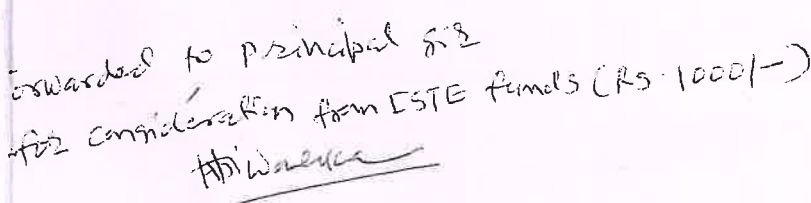 orwarded to principal sir
for consideration from ISTE funds (Rs. 1000/-)